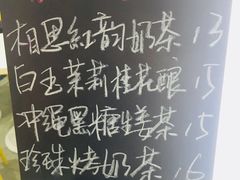 相思紅韵奶茶 13
白玉茉莉桂花酿 15
冲绳黑糖生姜茶 15
珍珠烤奶茶 16